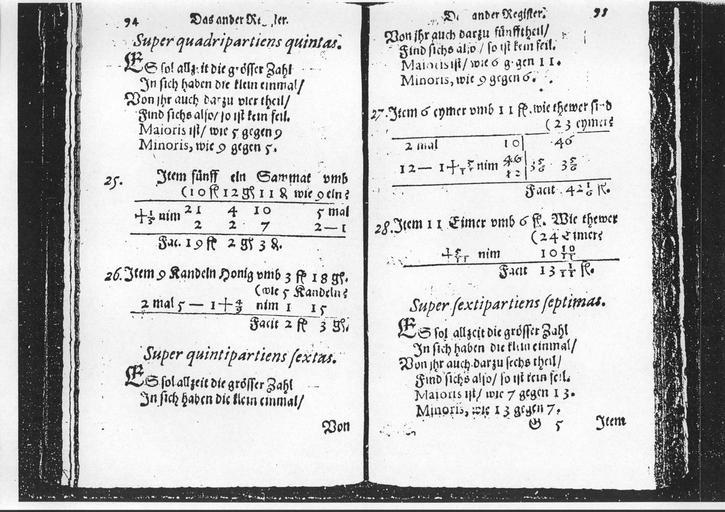 94 Das ander Re ter.
Super quadripartiens quintas.
ES sol allzeit die grösser Zahl
In sich haben die klein einmal/
Von jhr auch darzu vier theil/
Find sichs also/ so ist kein feil.
Maioris ist/ wie 5 gegen 9
Minoris, wie 9 gegen 5.
25. Item fünff eln Sammat vmb
(10 fl 12 gl 11 ₰ wie 9 eln?
+ 4/5 nim 21 4 10 5 mal
2 2 7 2 — 1
Fac. 19 fl 2 gl 3 ₰.
26. Item 9 Kandeln Honig vmb 3 fl 18 gl.
(wie 5 Kandeln?
2 mal 5 — 1 + 4/9 nim 1 15
Facit 2 fl 3 gl.
Super quintipartiens sextas.
ES sol allzeit die grösser Zahl
In sich haben die klein einmal/
Von
D ander Register. 95
Von jhr auch darzu fünff theil/
Find sichs also/ so ist kein feil.
Maioris ist/ wie 6 gegen 11.
Minoris, wie 9 gegen 6.
27. Item 6 eymer vmb 11 fl. wie thewer sind
(23 eymer?
2 mal 10 46
12 — 1 + nim 46 3 5/6 3 5/6
12
Facit 42 1/6 fl.
28. Item 11 Eimer vmb 6 fl. Wie thewer
(24 Eimer?
+ nim 10 10/11
Facit 13 1/11 fl.
Super sextipartiens septimas.
ES sol allzeit die grösser Zahl
In sich haben die klein einmal/
Von jhr auch darzu sechs theil/
Find sichs also/ so ist kein feil.
Maioris ist/ wie 7 gegen 13.
Minoris, wie 13 gegen 7.
G 5 Item